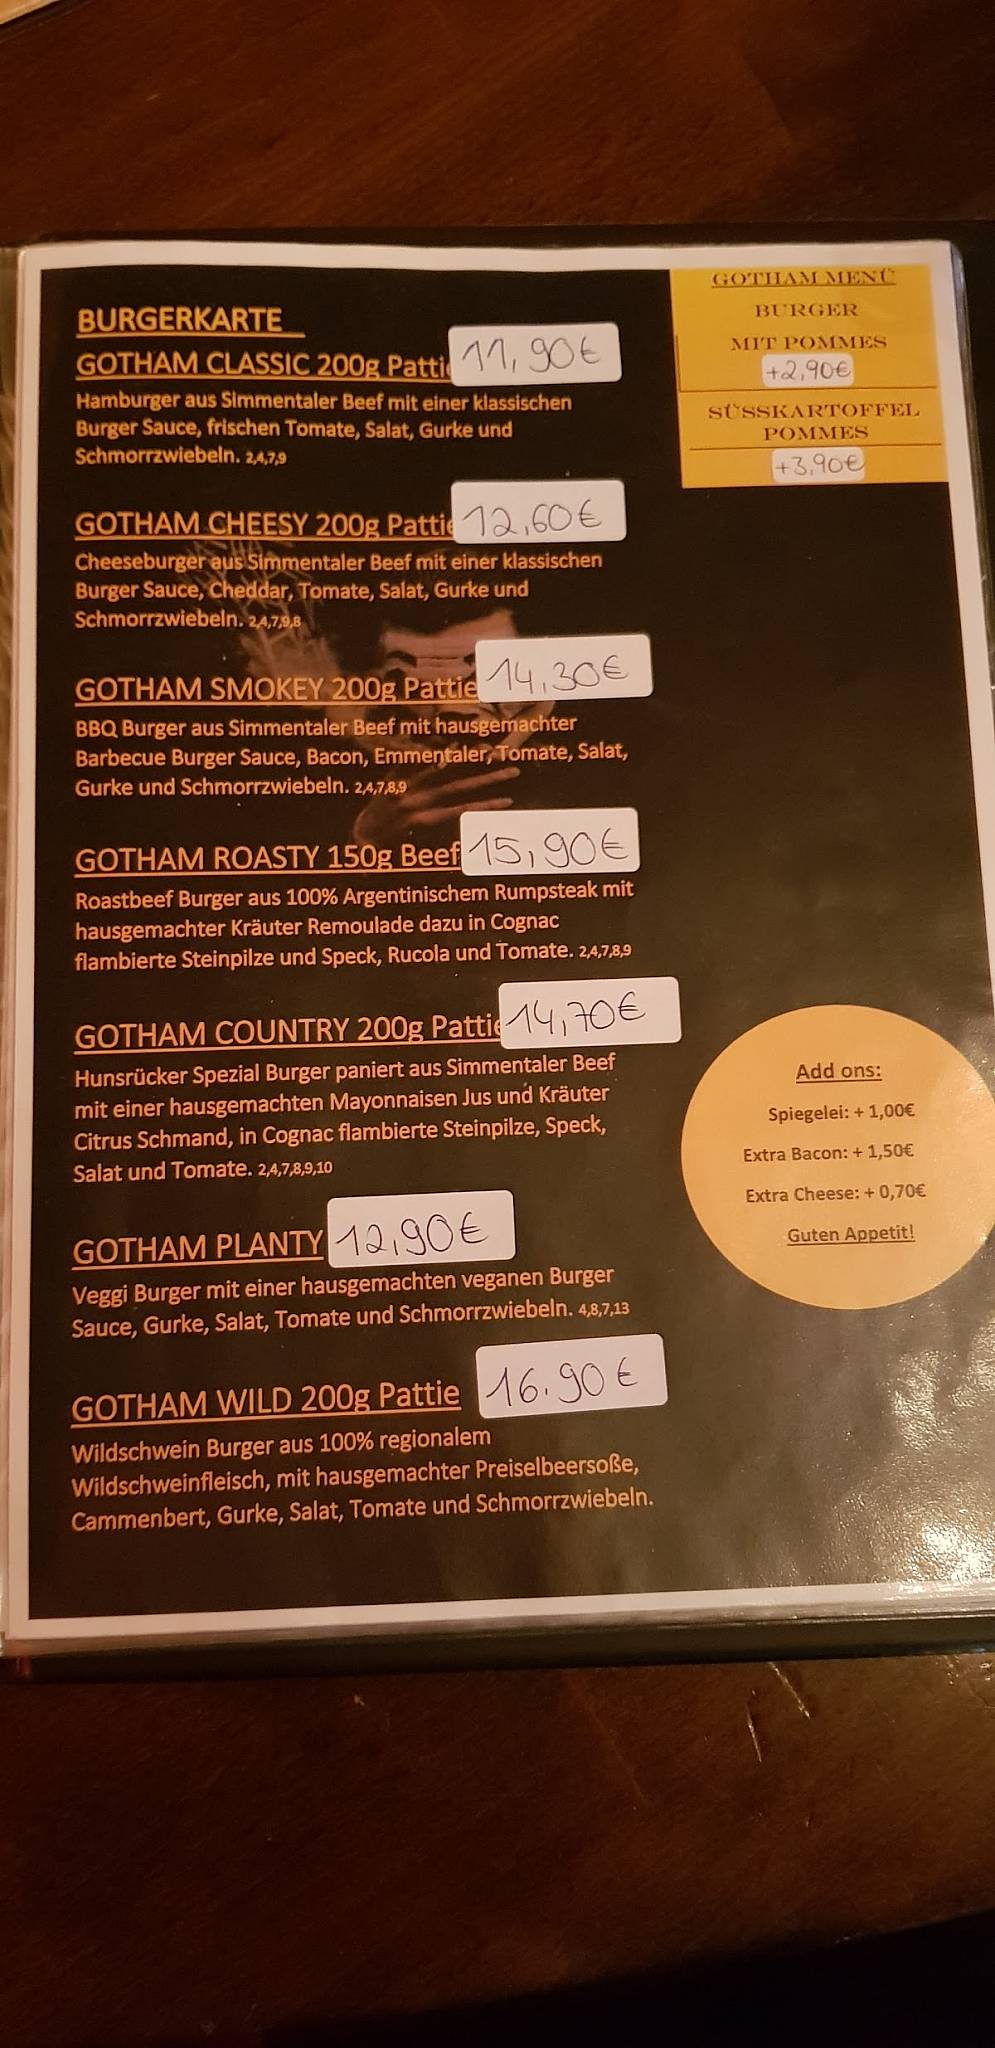 BURGERKARTE
GOTHAM CLASSIC 200g Patti 11,90€
Hamburger aus Simmentaler Beef mit einer klassischen
Burger Sauce, frischen Tomate, Salat, Gurke und
Schmorrzwiebeln. 2,4,7,9
GOTHAM CHEESY 200g Pattie 12,60€
Cheeseburger aus Simmentaler Beef mit einer klassischen
Burger Sauce, Cheddar, Tomate, Salat, Gurke und
Schmorrzwiebeln. 2,4,7,9,8
GOTHAM SMOKEY 200g Pattie 14,30€
BBQ Burger aus Simmentaler Beef mit hausgemachter
Barbecue Burger Sauce, Bacon, Emmentaler, Tomate, Salat,
Gurke und Schmorrzwiebeln. 2,4,7,8,9
GOTHAM ROASTY 150g Beef 15,90€
Roastbeef Burger aus 100% Argentinischem Rumpsteak mit
hausgemachter Kräuter Remoulade dazu in Cognac
flambierte Steinpilze und Speck, Rucola und Tomate. 2,4,7,8,9
GOTHAM COUNTRY 200g Pattie 14,70€
Hunsrücker Spezial Burger paniert aus Simmentaler Beef
mit einer hausgemachten Mayonnaisen Jus und Kräuter
Citrus Schmand, in Cognac flambierte Steinpilze, Speck,
Salat und Tomate. 2,4,7,8,9,10
GOTHAM PLANTY 12,90€
Veggi Burger mit einer hausgemachten veganen Burger
Sauce, Gurke, Salat, Tomate und Schmorrzwiebeln. 4,8,7,13
GOTHAM WILD 200g Pattie 16.90€
Wildschwein Burger aus 100% regionalem
Wildschweinfleisch, mit hausgemachter Preiselbeersoße,
Cammenbert, Gurke, Salat, Tomate und Schmorrzwiebeln.
GOTHAM MENÜ
BURGER
MIT POMMES
+2,90€
SÜSSKARTOFFEL
POMMES
+3,90€
Add ons:
Spiegelei: + 1,00€
Extra Bacon: + 1,50€
Extra Cheese: + 0,70€
Guten Appetit!